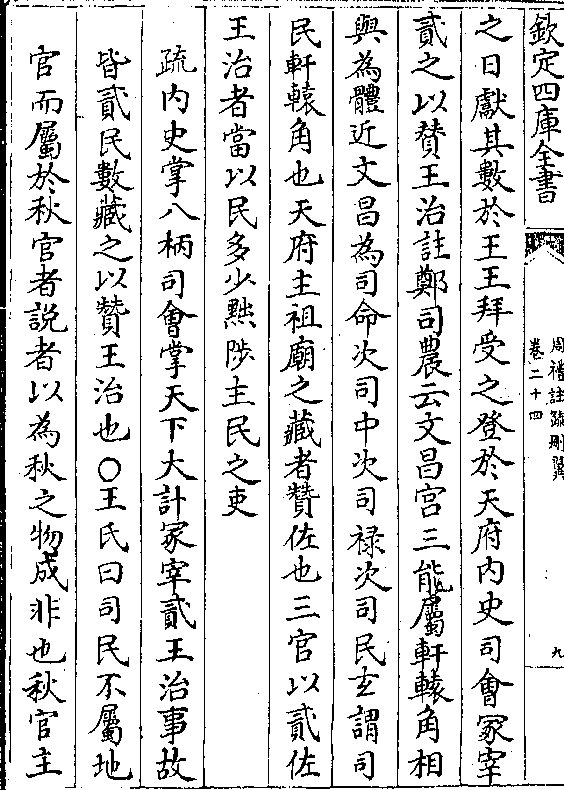 欽定四庫全書
周禮註疏刪翼
卷二十四
九
之日獻其數於王王拜受之登於天府内史司會冢宰
貳之以贊王治註鄭司農云文昌宫三能屬軒轅角相
與為體近文昌為司命次司中次司禄次司民玄謂司
民軒轅角也天府主祖廟之藏者贊佐也三官以貳佐
王治者當以民多少黜陟主民之吏
疏内史掌八柄司會掌天下大計冢宰貳王治事故
皆貳民數藏之以贊王治也○王氏曰司民不屬地
官而屬於秋官者説者以為秋之物成非也秋官主